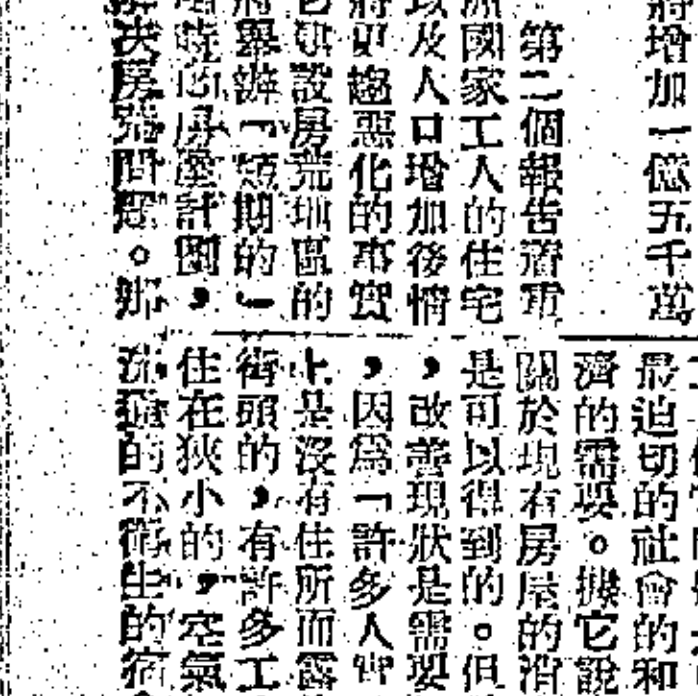 將增加一億五千萬
第二個報告着重
洲國家工人的住宅
以及人口增加後情
將更趨惡化的事實
它建設房荒地區的
將舉辦「短期的」
時的房屋計劃，
解决房荒問題。那
最迫切的社會的和
濟的需要。據它說
關於現有房屋的消
是可以得到的。但
，改善現狀是需要
，因爲「許多人實
上是沒有住所而露
街頭的，有許多工
住在狹小的，空氣
流通的不衛生的宿